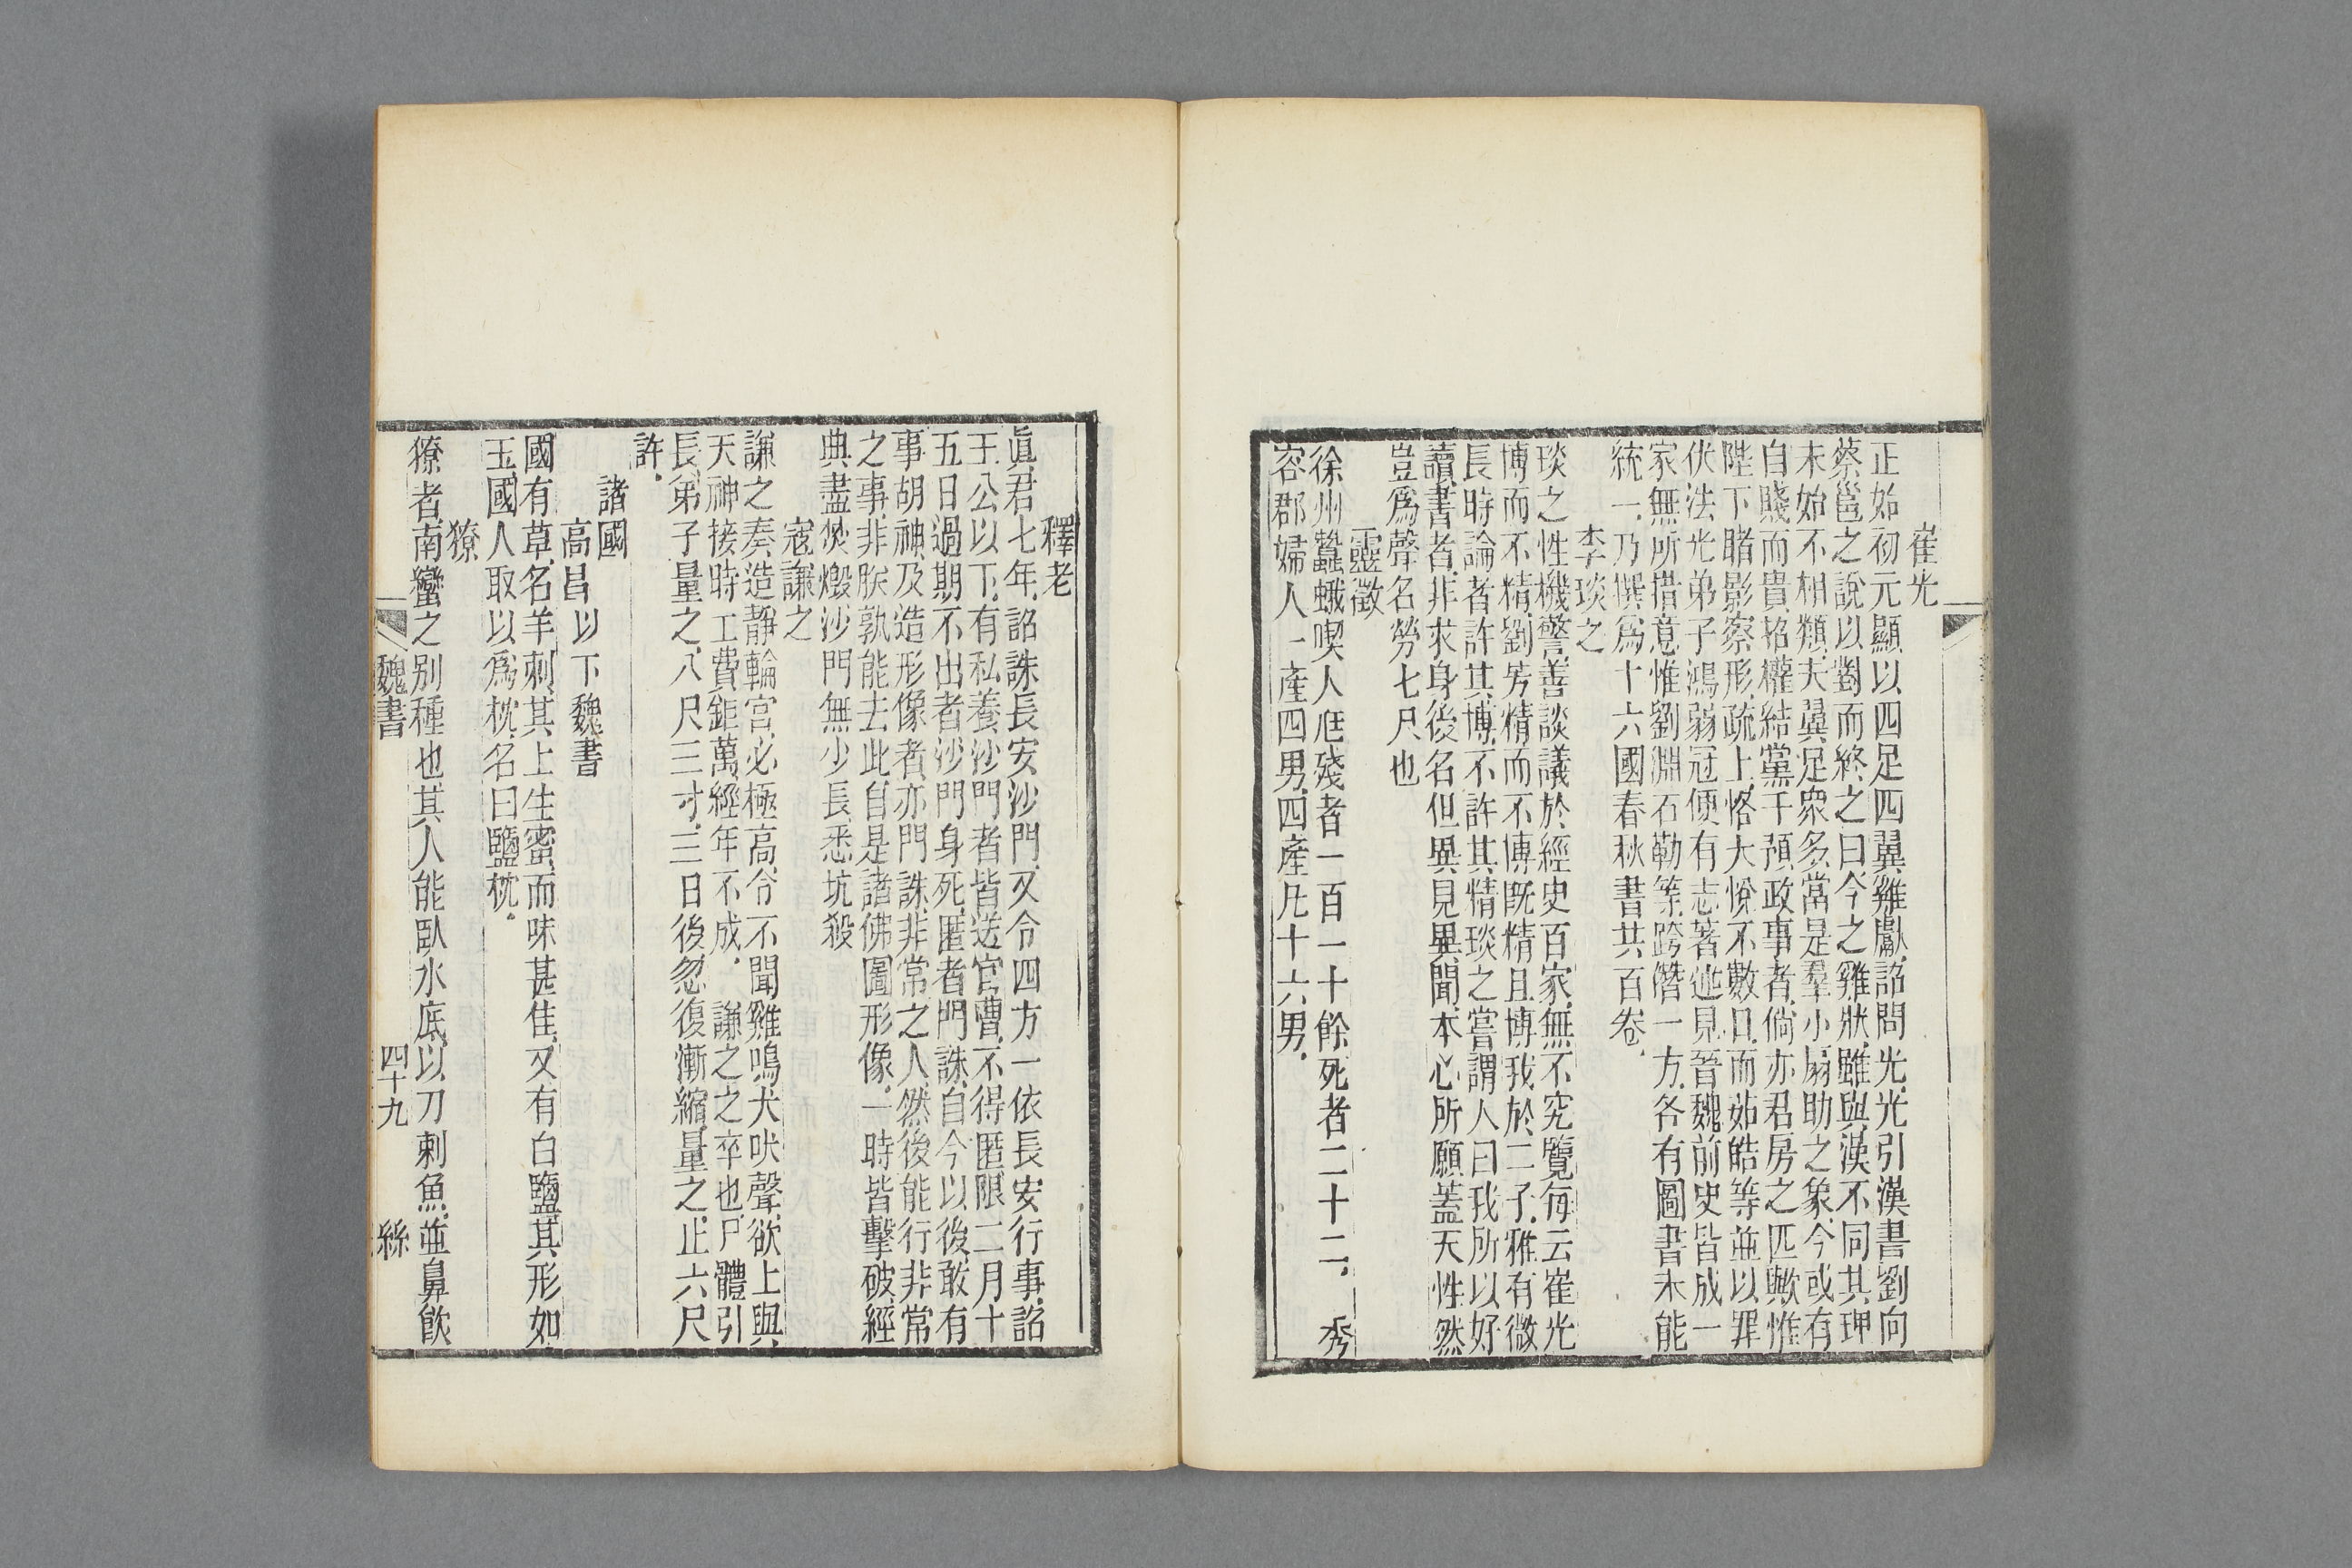 崔光
正始初元顯以四足四翼雞獻詔問光光引漢書劉向
蔡邕之說以對而終之曰今之雞狀雖與漢不同其理
未始不相類夫翼足衆多當是羣小扇助之象今或有
自賤而貴招權結黨干預政事者倘亦君房之匹歟惟
陛下睹影察形疏上悋大悅不數日而茹皓等並以罪
伏法光弟子鴻弱冠便有志著述見晉魏前史皆成一
家無所措意惟劉淵石勒等跨僭一方各有圖書未能
統一乃撰爲十六國春秋書共百卷
李琰之
琰之性機警善談議於經史百家無不究覽每云崔光
博而不精劉芳精而不博我既精且博我於二子雅有微
長時論者許其博不許其精琰之嘗謂人曰我所以好
讀書者非求身後名但異見異聞本心所願蓋天性然
豈爲聲名勞七尺也
靈徵
徐州蠶蛾喫人尫殘者一百一十餘死者二十二　秀
容郡婦人一產四男四產凡十六男
釋老
眞君七年詔誅長安沙門又令四方一依長安行事詔
王公以下有私養沙門者皆送官曹不得匿限二月十
五日過期不出者沙門身死匿者門誅自今以後敢有
事胡神及造形像者亦門誅非常之人然後能行非常
之事非朕孰能去此自是諸佛圖形像一時皆擊破經
典盡焚燬沙門無少長悉坑殺
寇謙之
謙之奏造靜輪宮必極高令不聞雞鳴犬吠聲欲上與
天神接時工費鉅萬經年不成　謙之之卒也尸體引
長弟子量之八尺三寸三日後忽復漸縮量之止六尺
許
諸國
高昌以下魏書
國有草名羊刺其上生蜜而味甚佳又有白鹽其形如
玉國人取以爲枕名曰鹽枕
獠
獠者南蠻之別種也其人能臥水底以刀刺魚並鼻飲
魏書　四十九　絲